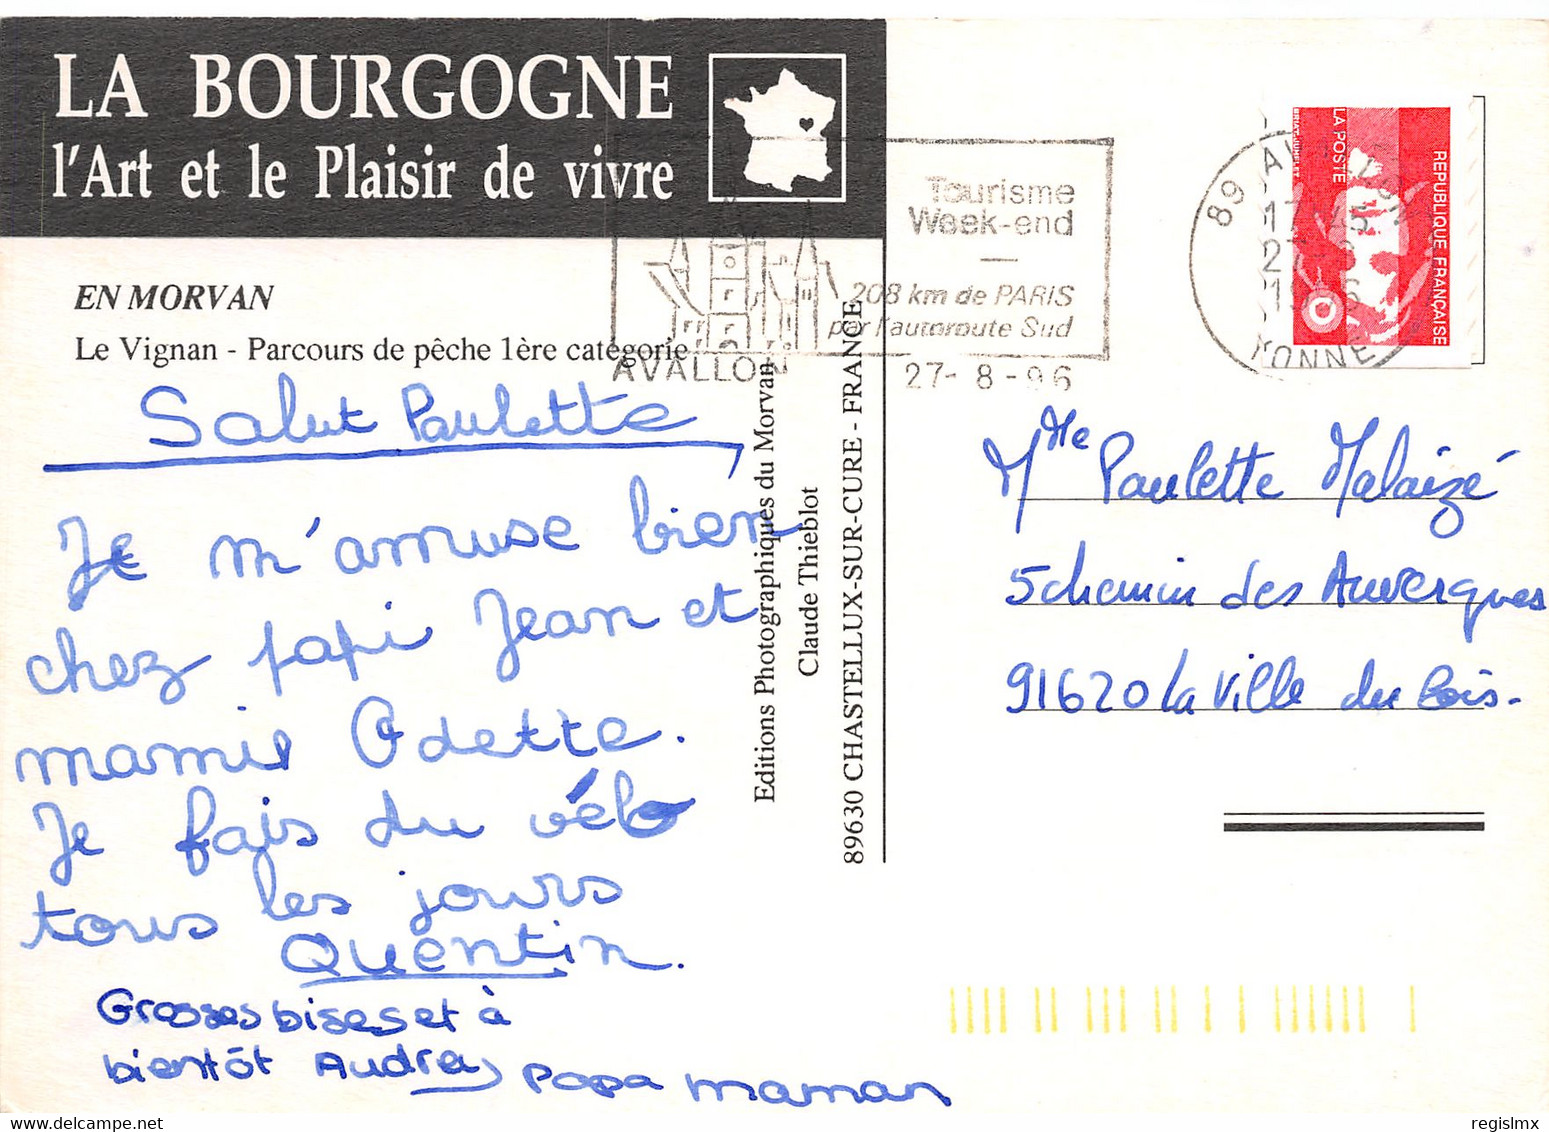 LA BOURGOGNE
l'Art et le Plaisir de vivre
EN MORVAN
Le Vignan - Parcours de pêche 1ère catégorie
Salut Paulette
Je m'amuse bien
chez papi Jean et
mamie Odette.
Je fais du vélo
tous les jours
Quentin.
Grosses bises et à
bientôt Audrey Papa maman
Editions Photographiques du Morvan
Claude Thieblot
89630 CHASTELLUX-SUR-CURE - FRANCE
Tourisme
Week-end
—
208 km de PARIS
par l'autoroute Sud
AVALLON
27-8-96
89
YONNE
REPUBLIQUE FRANÇAISE
LA POSTE
Mlle Paulette Malaizé
5 chemin des Auvergques
91620 La Ville du bois.
regislmx